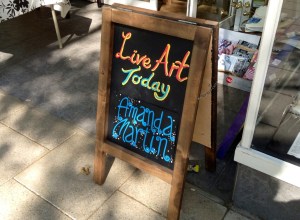 Live Art
Today
Amanda
Martin